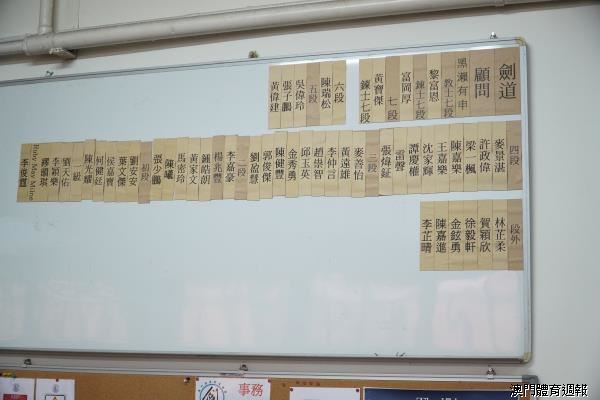 劍道
顧問
黑瀨有申
教士七段
黎富恩
鍊士七段
富岡厚
七段
黃寶傑
鍊士七段
六段
陳瑞松
五段
吳偉玲
張子鵬
黃偉建
四段
麥景湛
許政偉
梁一楓
陳嘉樂
王嘉樂
沈家輝
譚慶權
雷聲
張煒鉦
三段
麥善怡
黃遠雄
李仲言
趙崇智
邱玉英
金秀勇
陳健豐
郭俊傑
劉盈慧
二段
李嘉豪
楊兆豐
鍾皓朗
黃家文
馬密玲
陳曦
張少鵬
初段
劉安安
葉文傑
侯嘉寶
柯健廷
陳光耀
一級
劉天佑
李穎樂
李俊萱
段外
林芷柔
賀穎欣
徐毅軒
金鉉勇
陳嘉進
李芷晴
事務
澳門體育週報